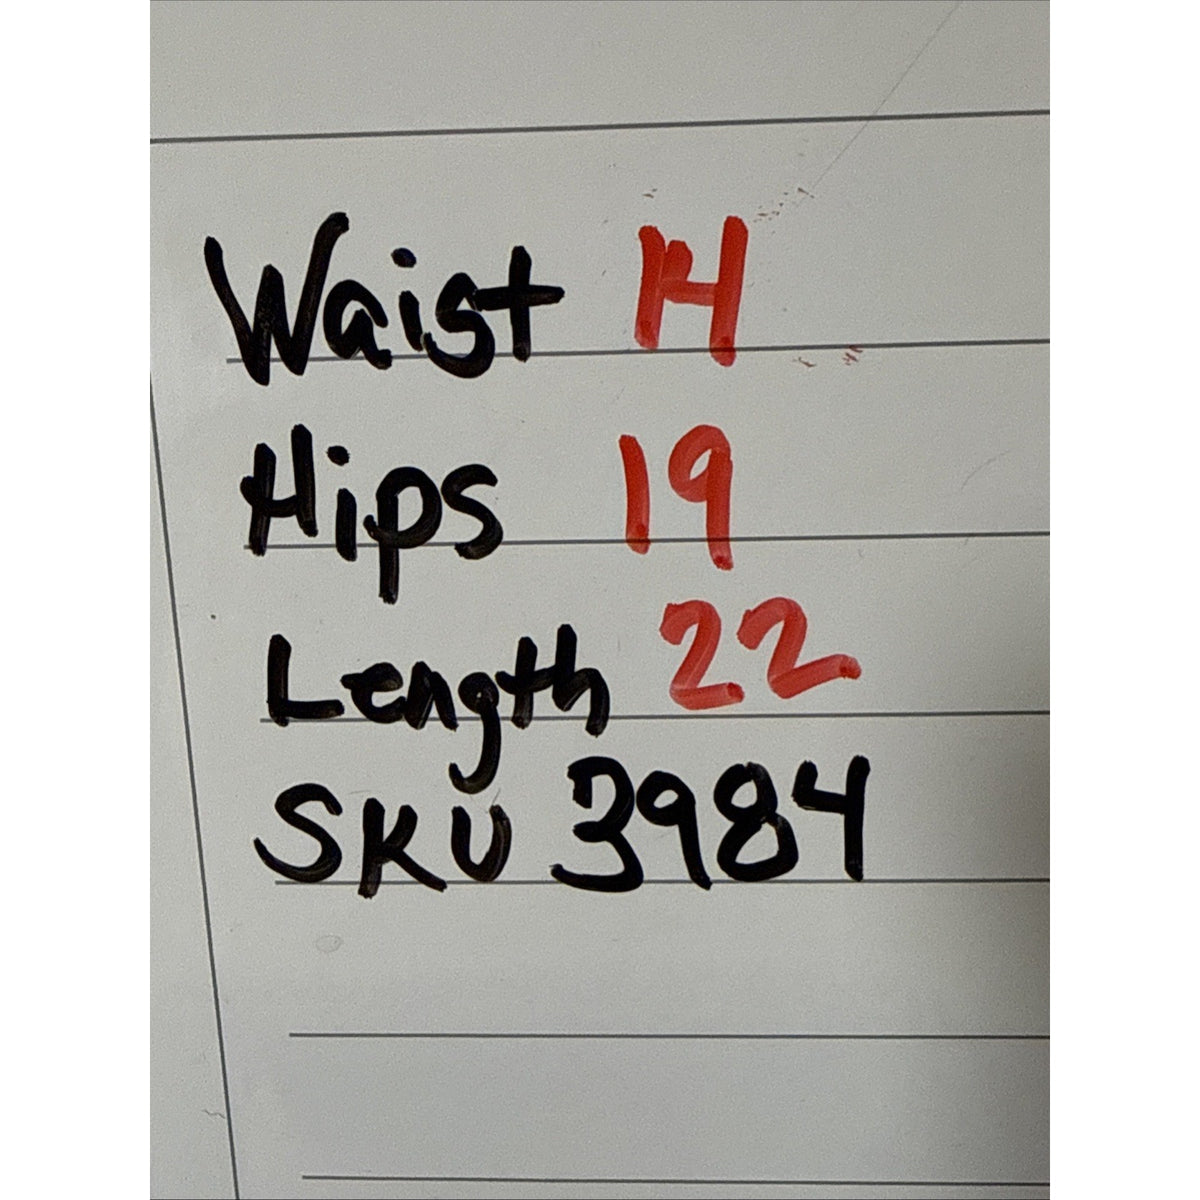 Waist 14
Hips 19
Length 22
SKU 3984